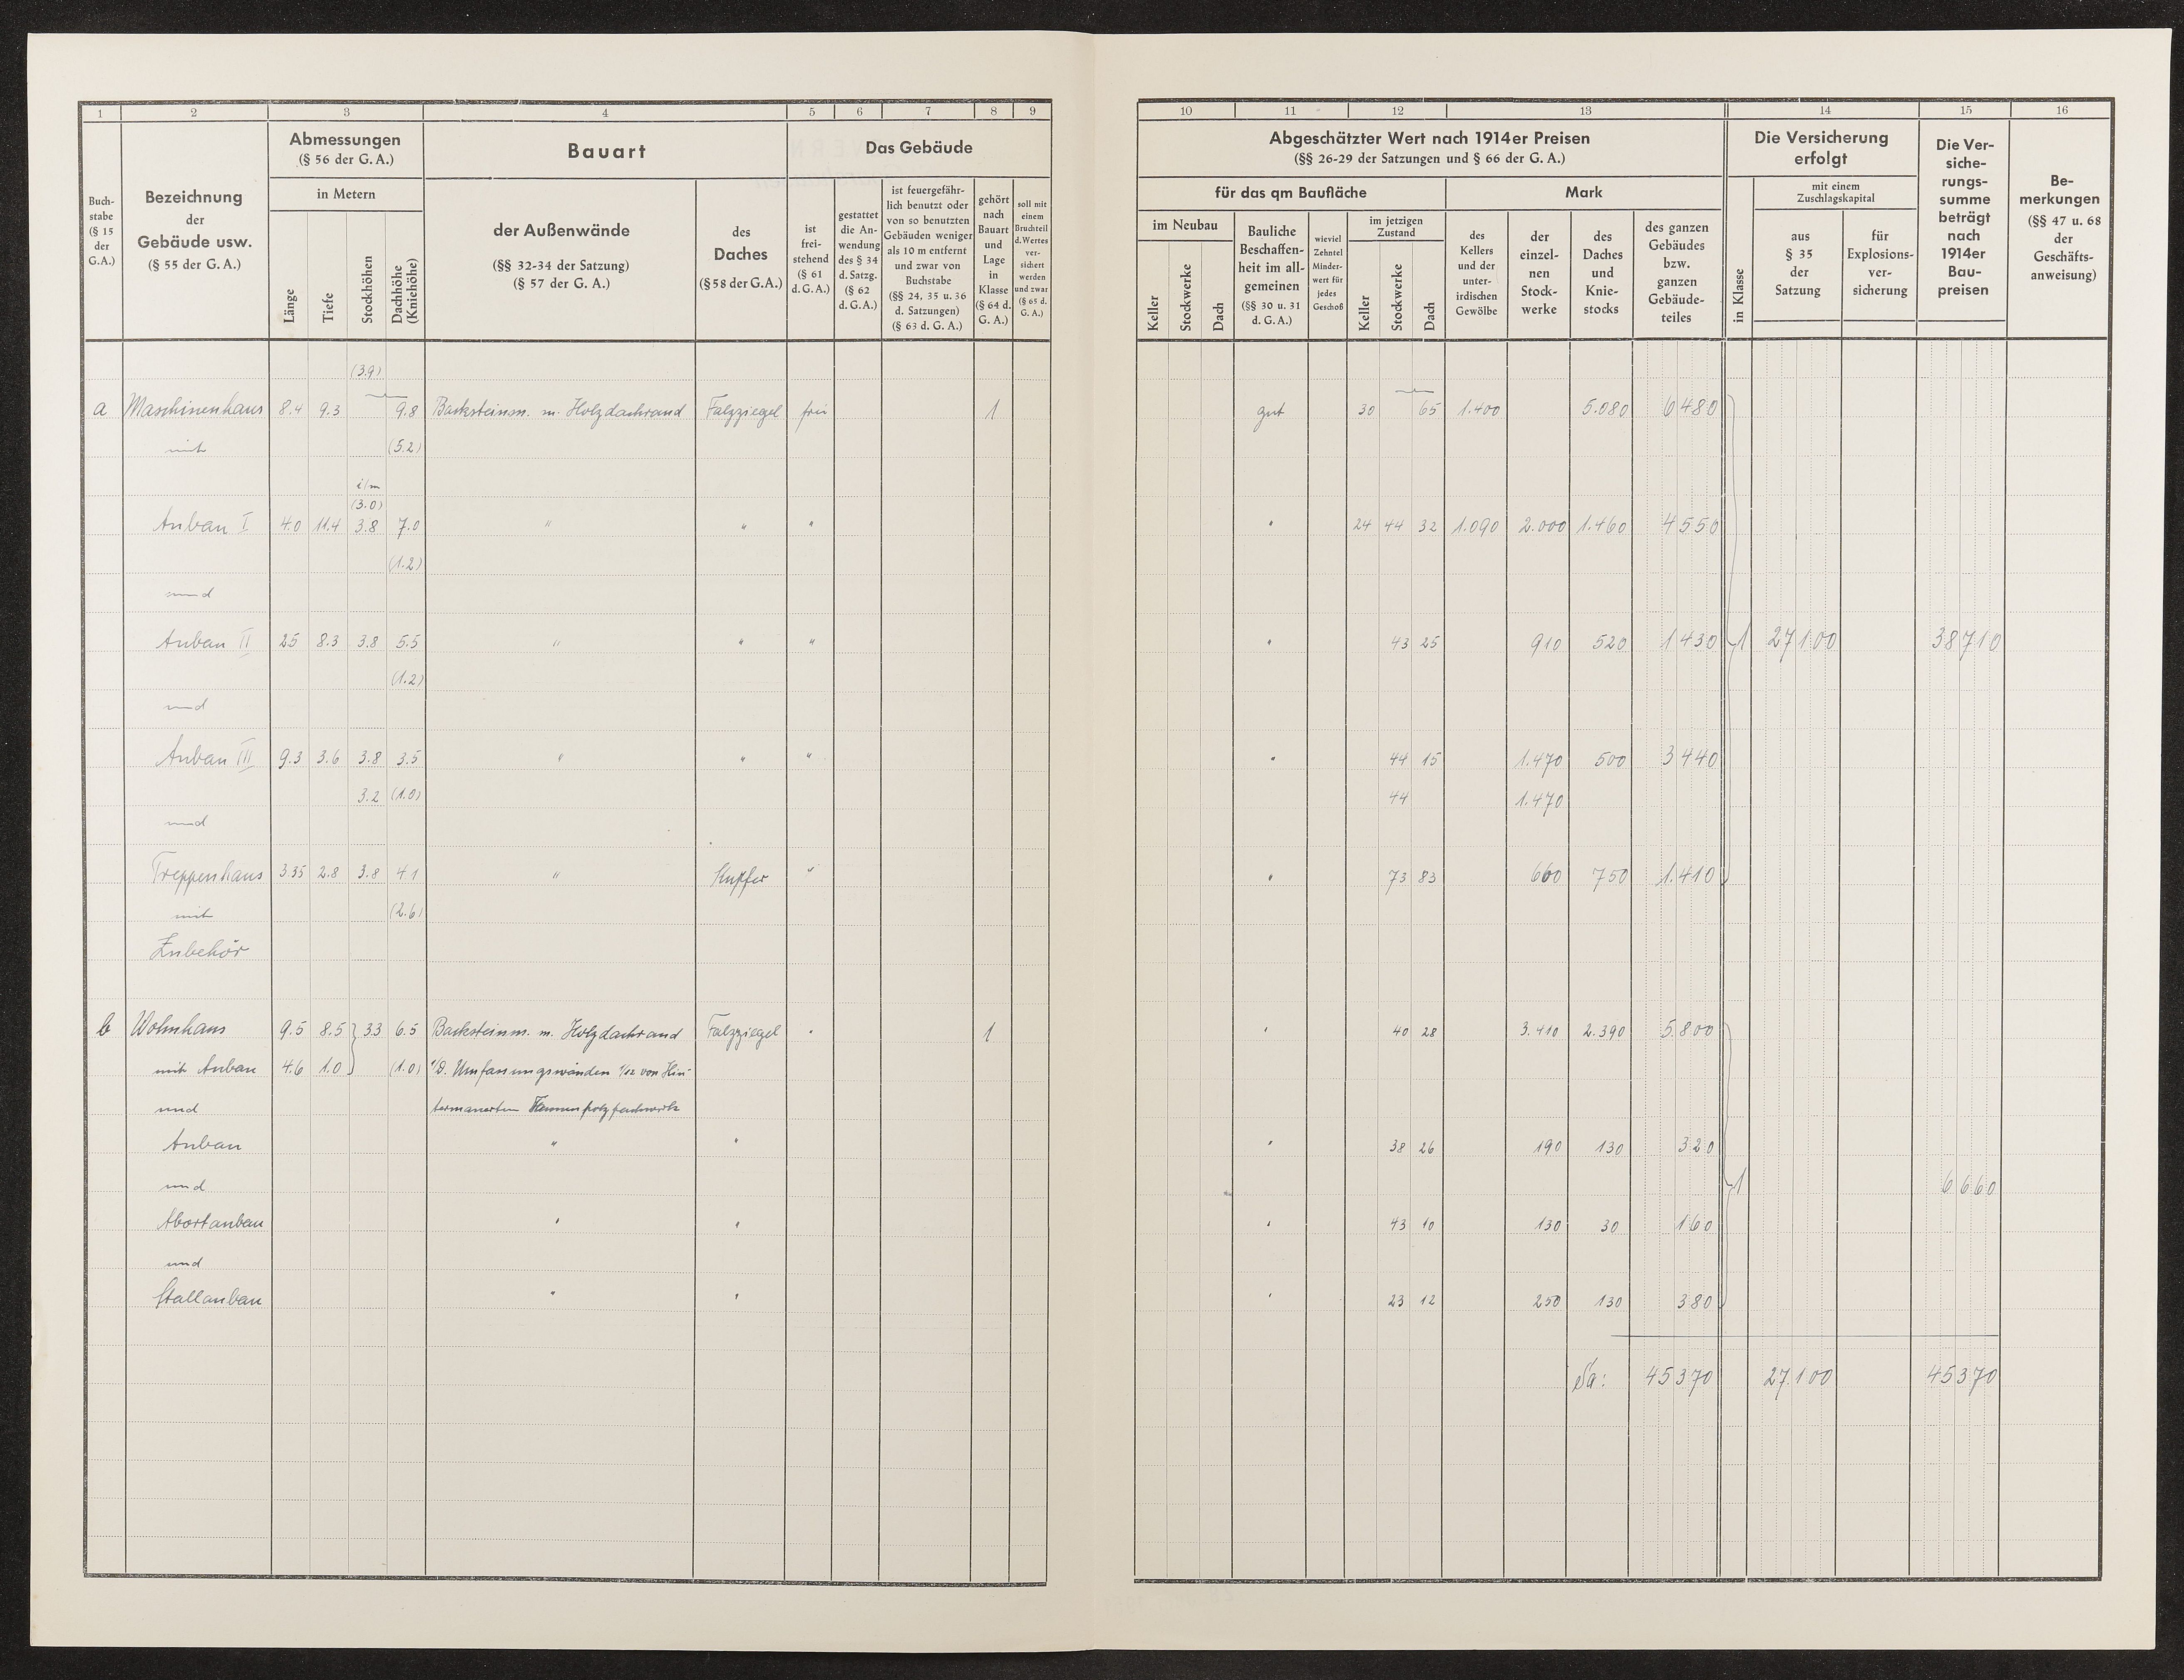 1 2 3 4 5 6 7 8 9
Buch-
stabe
(§ 15
der
G.A.)
Bezeichnung
der
Gebäude usw.
(§ 55 der G. A.)
Abmessungen
(§ 56 der G. A.)
in Metern
Länge
Tiefe
Stockhöhen
Dachhöhe
(Kniehöhe)
Bauart
der Außenwände
(§§ 32-34 der Satzung)
(§ 57 der G. A.)
des
Daches
(§ 58 der G.A.)
Das Gebäude
ist
frei-
stehend
(§ 61
d. G. A.)
gestattet
die An-
wendung
des § 34
d. Satzg.
(§ 62
d. G. A.)
ist feuergefähr-
lich benutzt oder
von so benutzten
Gebäuden weniger
als 10 m entfernt
und zwar von
Buchstabe
(§§ 24, 35 u. 36
d. Satzungen)
(§ 63 d. G. A.)
gehört
nach
Bauart
und
Lage
in
Klasse
(§ 64 d.
G. A.)
soll mit
einem
Bruchteil
d. Wertes
ver-
sichert
werden
und zwar
(§ 65 d.
G. A.)
(3.9)
a Maschinenhaus 8.4 9.3 9.8 Backsteinm. m. Holzdachrand Falzziegel frei 1
mit (5.2)
i/m
(3.0)
Anbau I 4.0 11.4 3.8 7.0 " " "
(1.2)
und
Anbau II 25 8.3 3.8 5.5 " " "
(1.2)
und
Anbau III 9.3 3.6 3.8 3.5 " " "
3.2 (1.0)
und
Treppenhaus 3.35 2.8 3.8 4.1 " Kupfer "
mit (2.6)
Zubehör
b Wohnhaus 9.5 8.5 } 3.3 6.5 Backsteinm. m. Holzdachrand Falzziegel " 1
mit Anbau 4.6 1.0 (1.0) Umfassungswänden 1/12 von Hin-
und termauertem
Anbau " "
und
Abortanbau " "
und
Stallanbau " "
10 11 12 13 14 15 16
Abgeschätzter Wert nach 1914er Preisen
(§§ 26-29 der Satzungen und § 66 der G. A.)
für das qm Baufläche
im Neubau
Keller
Stockwerke
Dach
Bauliche
Beschaffen-
heit im all-
gemeinen
(§§ 30 u. 31
d. G. A.)
wieviel
Zehntel
Minder-
wert für
jedes
Geschoß
im jetzigen
Zustand
Keller
Stockwerke
Dach
Mark
des
Kellers
und der
unter-
irdischen
Gewölbe
der
einzel-
nen
Stock-
werke
des
Daches
und
Knie-
stocks
des ganzen
Gebäudes
bzw.
ganzen
Gebäude-
teiles
Die Versicherung
erfolgt
in Klasse
mit einem
Zuschlagskapital
aus
§ 35
der
Satzung
für
Explosions-
ver-
sicherung
Die Ver-
siche-
rungs-
summe
beträgt
nach
1914er
Bau-
preisen
Be-
merkungen
(§§ 47 u. 68
der
Geschäfts-
anweisung)
gut 30 65 1.400 5.080 6480
" 24 44 32 1.090 2.000 1.460 4550
" 43 25 910 520 1430 1 27100 38710
" 44 15 1.470 500 3440
44 1.470
" 73 83 660 750 1.410
" 40 28 3.410 2.390 5.800
" 38 26 190 130 320
1 6660
" 43 10 130 30 160
" 23 12 250 130 380
Sa: 45370 27.100 45370